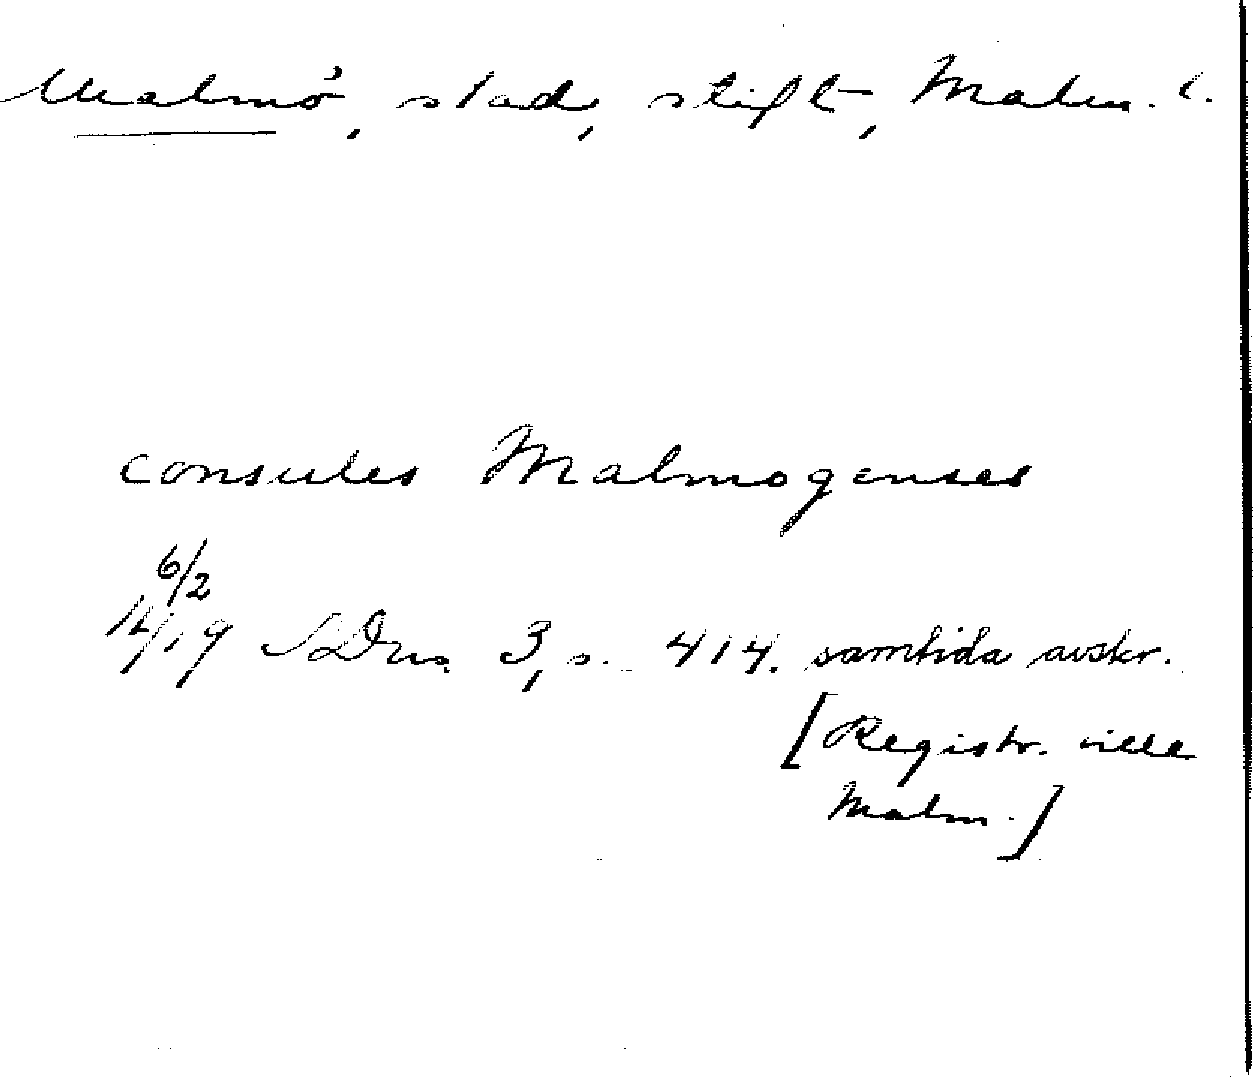 Malmö, stad, stift, Malm. l.
consules Malmogenses
6/2
14/19 SDns 3, s. 414. samtida avskr.
[Registr. ville
Malm.]